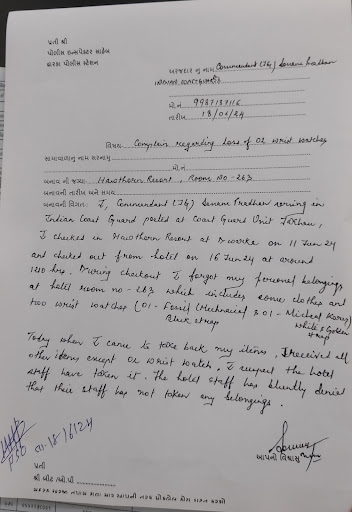 પ્રતી શ્રી
પોલીસ ઇન્સ્પેક્ટર સાહેબ
દ્વારકા પોલીસ સ્ટેશન
અરજદાર નુ નામ Commandant (JG) Pradhan
મો.નં 9987187116
તારીખ 18/06/24
વિષય: Complain regarding loss of 02 wrist watches
સામાવાળાનુ નામ સરનામુ
મો.નં
બનાવ ની જગ્યા: Hawthorn Resort, Room No - 263
બનાવની તારીખ અને સમય
બનાવની વિગત: I, Commandant (JG) Pradhan serving in
Indian Coast Guard posted at Coast Guard Unit Jakhau,
I checked in Hawthorn Resort at Dwarka on 11 Jun 24
and checked out from hotel on 16 Jun 24 at around
1200 hrs. During checkout I forgot my personal belongings
at hotel room no - 263 which includes some clothes and
two wrist watches (01 - Fossil (Mechanical) & 01 - Micheal Kores)
Black strap White & Golden strap
Today when I came to take back my items, I received all
other items except 02 wrist watch. I suspect the hotel
staff have taken it. The hotel staff has bluntly denied
that their staff has not taken any belongings.
PSO તા-18/6/24
આપનો વિશ્વાસુ
પ્રતી
શ્રી બીટ /ઓ.પી